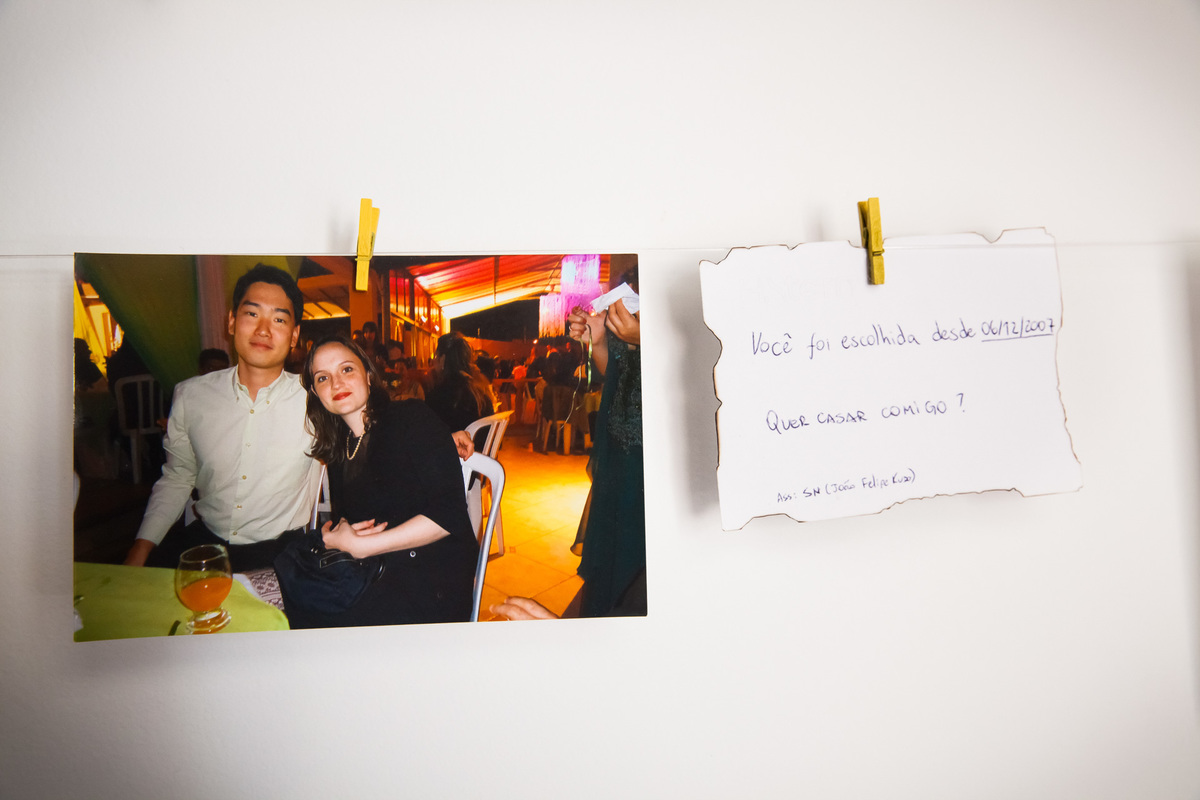 Você foi escolhida desde 06/12/2007
QUER CASAR COMIGO?
Ass: SN (João Felipe)